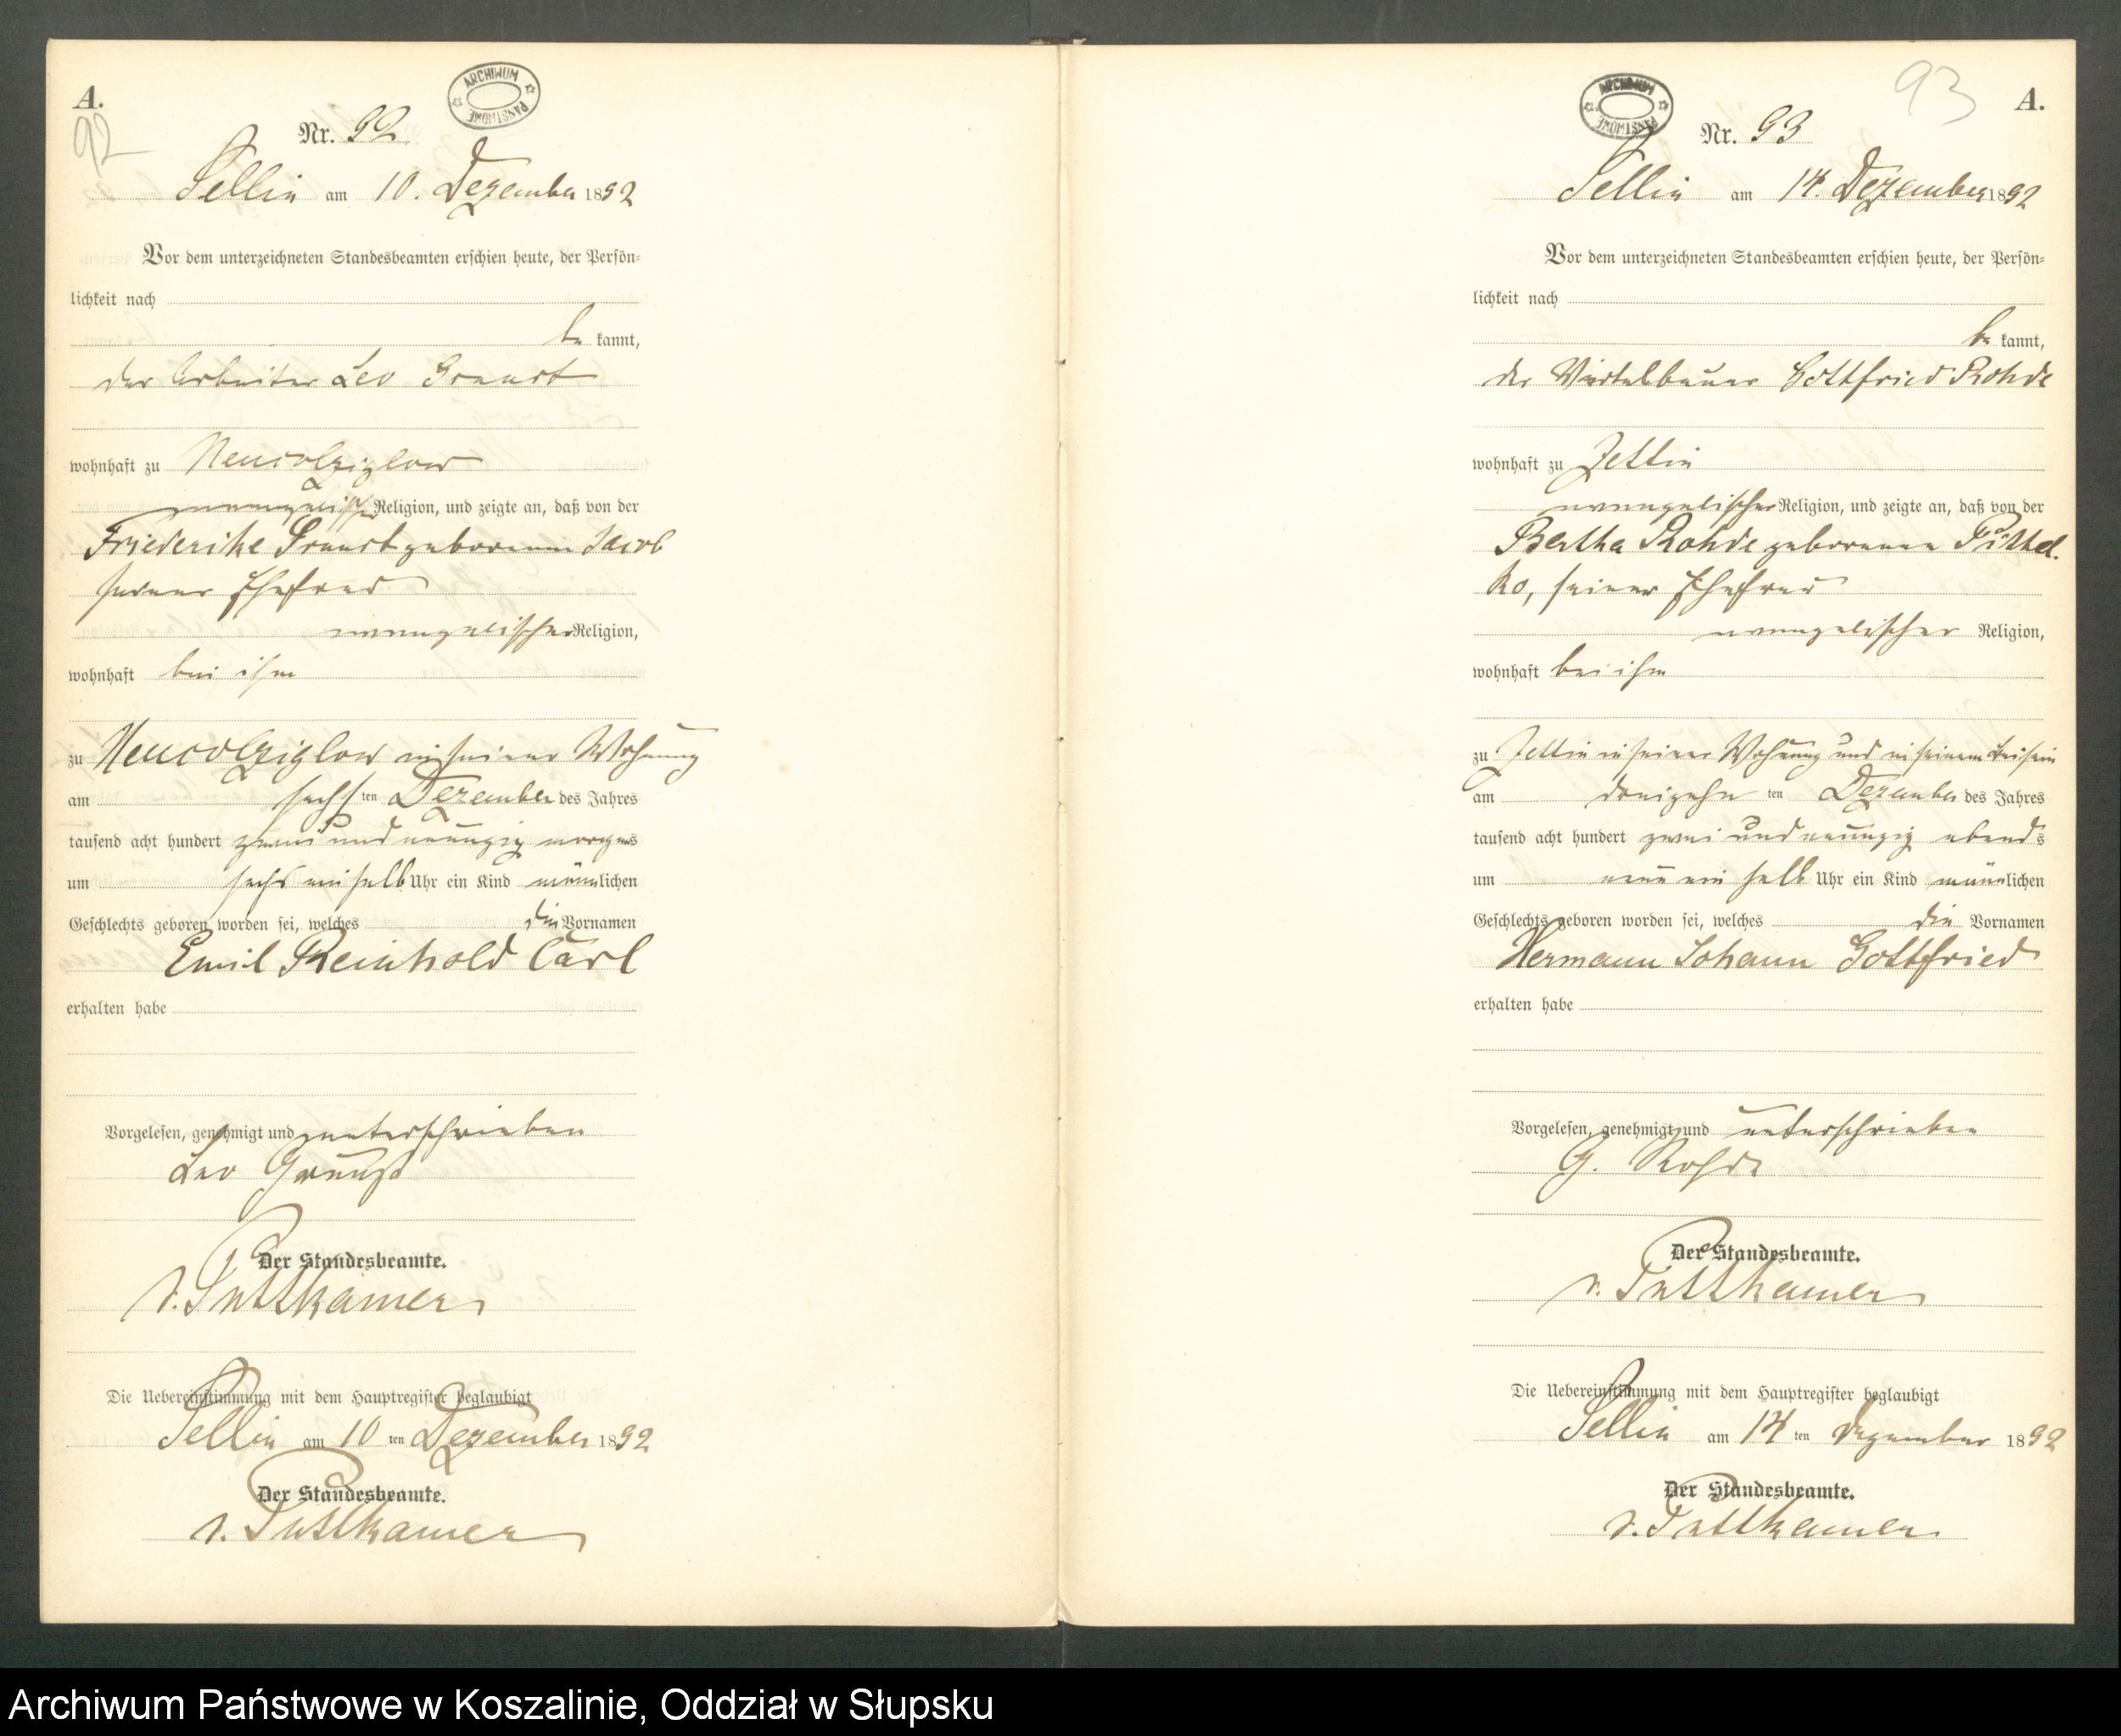 A.
92
ARCHIWUM PAŃSTWOWE
Nr. 92
Sellin am 10. Dezember 1892
Vor dem unterzeichneten Standesbeamten erschien heute, der Persön-
lichkeit nach
be kannt,
der Arbeiter Leo
wohnhaft zu Neucolziglow
evangelischer Religion, und zeigte an, daß von der
Friederike geborenen Jacob
seiner Ehefrau
evangelischer Religion,
wohnhaft bei ihm
zu Neucolziglow in seiner Wohnung
am sechs ten Dezember des Jahres
tausend acht hundert zwei und neunzig morgens
um sechs ein halb Uhr ein Kind männlichen
Geschlechts geboren worden sei, welches die Vornamen
Emil Reinhold Carl
erhalten habe
Vorgelesen, genehmigt und unterschrieben
Leo
Der Standesbeamte.
v. Puttkamer
Die Uebereinstimmung mit dem Hauptregister beglaubigt
Sellin am 10 ten Dezember 1892
Der Standesbeamte.
v. Puttkamer
93
A.
ARCHIWUM PAŃSTWOWE
Nr. 93
Sellin am 14. Dezember 1892
Vor dem unterzeichneten Standesbeamten erschien heute, der Persön-
lichkeit nach
be kannt,
der Viertelbauer Gottfried Rohde
wohnhaft zu Zettin
evangelischer Religion, und zeigte an, daß von der
Bertha Rohde geborenen
ko, seiner Ehefrau
evangelischer Religion,
wohnhaft bei ihm
zu Zettin in seiner Wohnung und in seinem Beisein
am dreizehn ten Dezember des Jahres
tausend acht hundert zwei und neunzig abends
um neun ein halb Uhr ein Kind männlichen
Geschlechts geboren worden sei, welches die Vornamen
Hermann Johann Gottfried
erhalten habe
Vorgelesen, genehmigt und unterschrieben
G. Rohde
Der Standesbeamte.
v. Puttkamer
Die Uebereinstimmung mit dem Hauptregister beglaubigt
Sellin am 14 ten Dezember 1892
Der Standesbeamte.
v. Puttkamer
Archiwum Państwowe w Koszalinie, Oddział w Słupsku